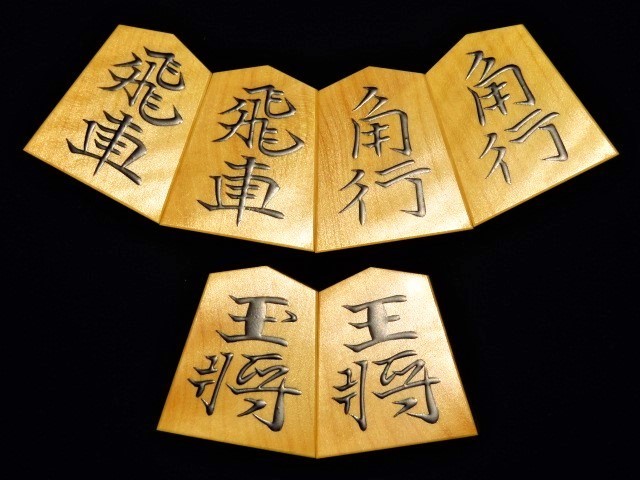 飛車
飛車
角行
角行
玉將
王將